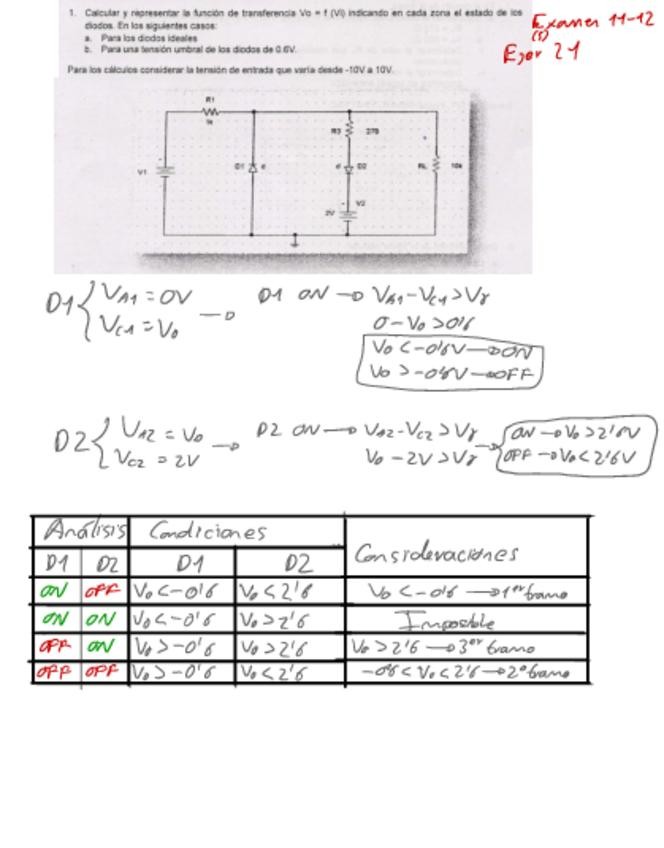 1. Calcular y representar la función de transferencia Vo = f (Vi) indicando en cada zona el estado de los
diodos. En los siguientes casos:
a. Para los diodos ideales
b. Para una tensión umbral de los diodos de 0.6V.
Para los cálculos considerar la tensión de entrada que varía desde -10V a 10V.
Examen 11-12
(1)
Ejer 21
R1
1k
R3 270
V1 D1 D2 RL 10k
V2
2V
D1 { VA1 = 0V
VC1 = Vo
→ D1 ON → VA1-VC1>Vγ
0-Vo >0'6
Vo <-0'6V→ON
Vo >-0'6V→OFF
D2 { VA2 = Vo
VC2 = 2V
→ D2 ON → VA2-VC2 >Vγ
Vo-2V>Vγ
→ ON →Vo>2'6V
OFF →Vo<2'6V
Análisis Condiciones Consideraciones
D1 D2 D1 D2
ON OFF Vo<-0'6 Vo<2'6 Vo <-0'6 →1er tramo
ON ON Vo<-0'6 Vo>2'6 Imposible
OFF ON Vo>-0'6 Vo>2'6 Vo>2'6 →3er tramo
OFF OFF Vo>-0'6 Vo<2'6 -0'6<Vo<2'6→2º tramo